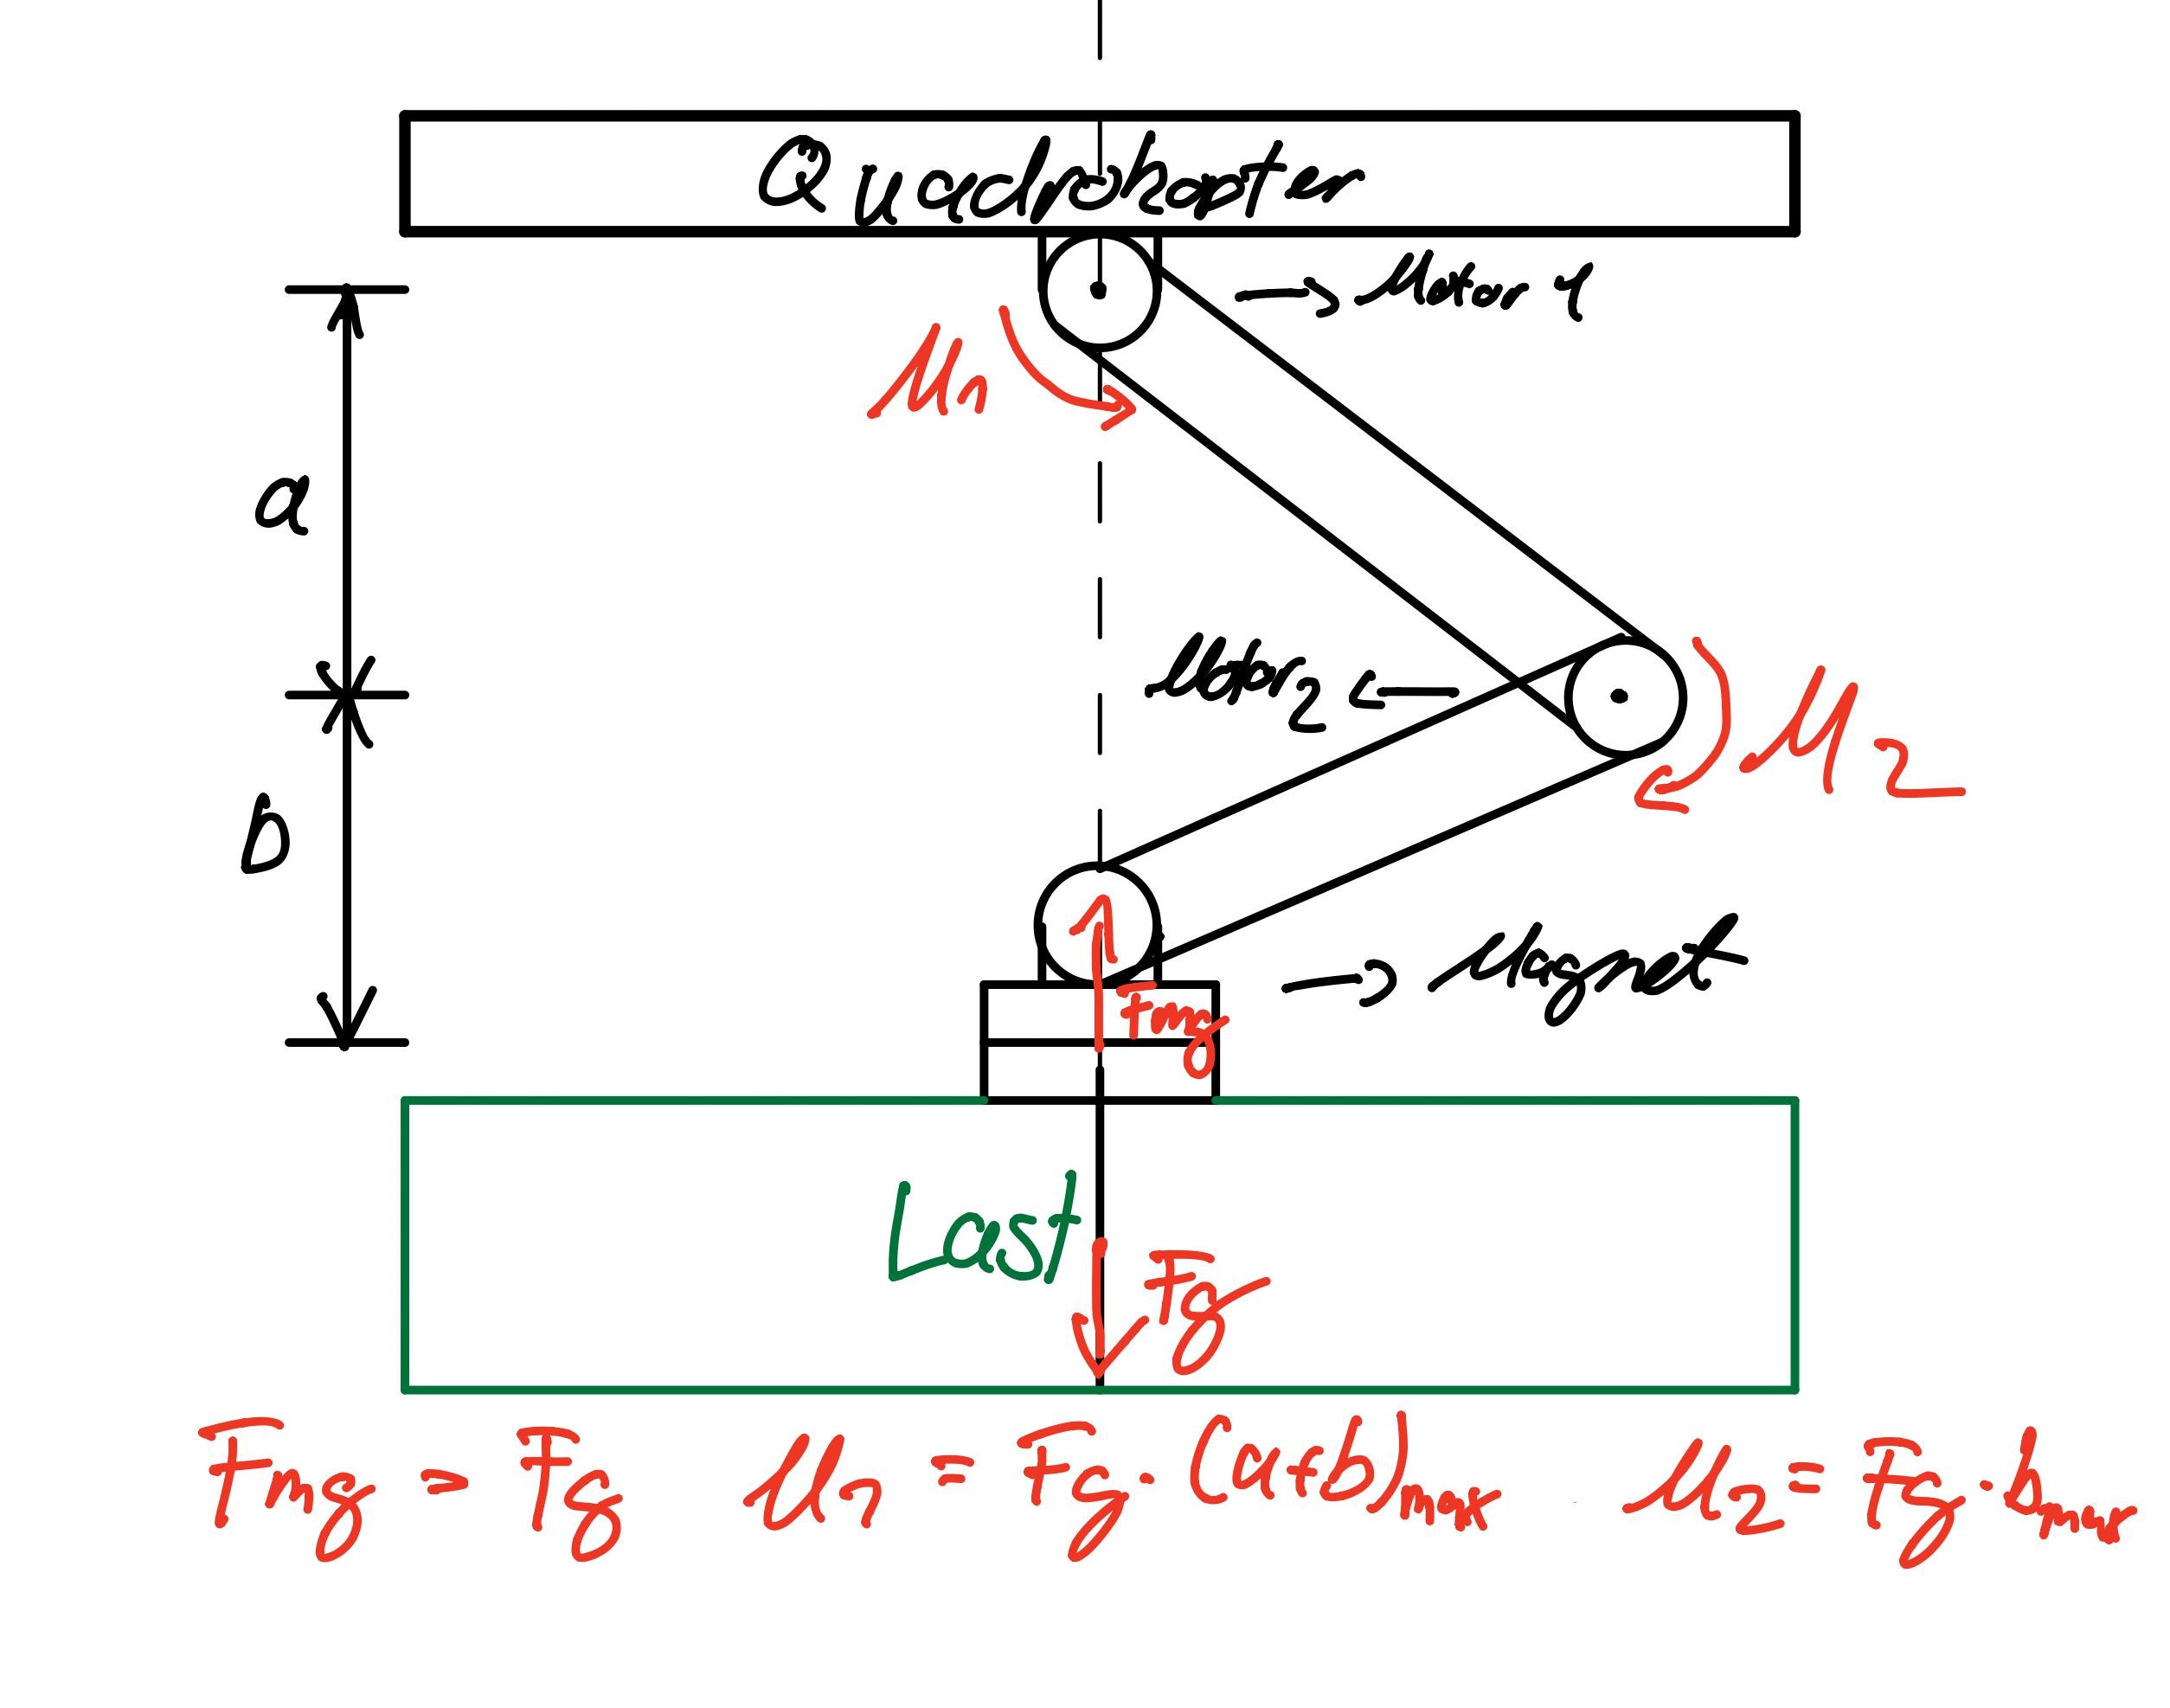 Quadrokopter
→ Motor 1
M₁
a
Motor 2 ←
M₂
b
→ Magnet
Fmg
Last
Fg
Fmg = Fg M₁ = Fg · (a+b)max M₂ = Fg · bmax